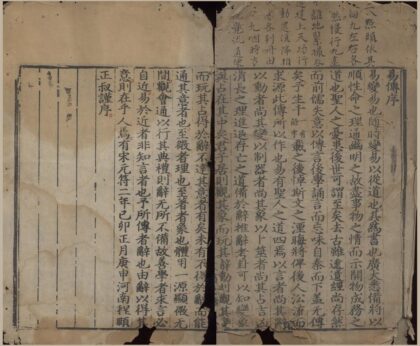 易傳序
易變易也隨時變易以從道也其爲書也廣大悉備將以
順性命之理通幽明之故盡事物之情而示開物成務之
道也聖人之憂患後世可謂至矣去古雖遠遺經尚存然
而前儒失意以傳言後學誦言而忘味自秦而下蓋无傳
矣予生千載之後悼斯文之湮晦將俾後人沿流而
求源此傳所以作也易有聖人之道四焉以言者尚其辭
以動者尚其變以制器者尚其象以卜筮者尚其占吉凶
消長之理進退存亡之道備於辭推辭考卦可以知變象
與占在其中矣君子居則觀其象而玩其辭動則觀其變
而玩其占得於辭不達其意者有矣未有不得於辭而能
通其意者也至微者理也至著者象也體用一源顯微无
間觀會通以行其典禮則辭无所不備故善學者求言必
自近易於近者非知言者也予所傳者辭也由辭以得其
意則在乎人焉有宋元符二年己卯正月庚申河南程頤
正叔謹序